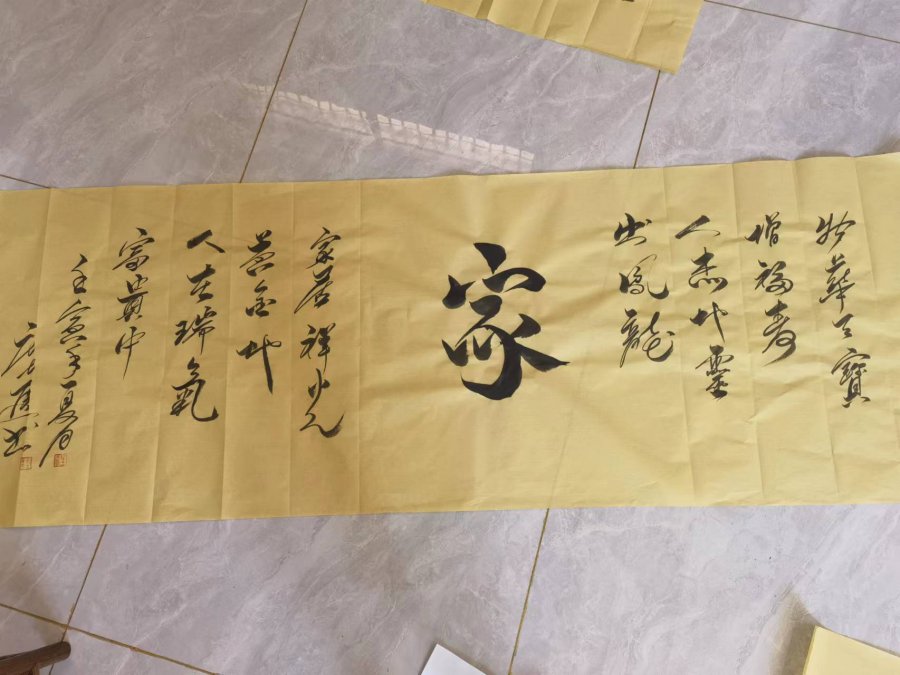 物華天寶
增福寿
人杰地靈
出鳳龍
家
家居祥光
蓋金地
人在瑞氣
富貴中
壬寅年夏月
书